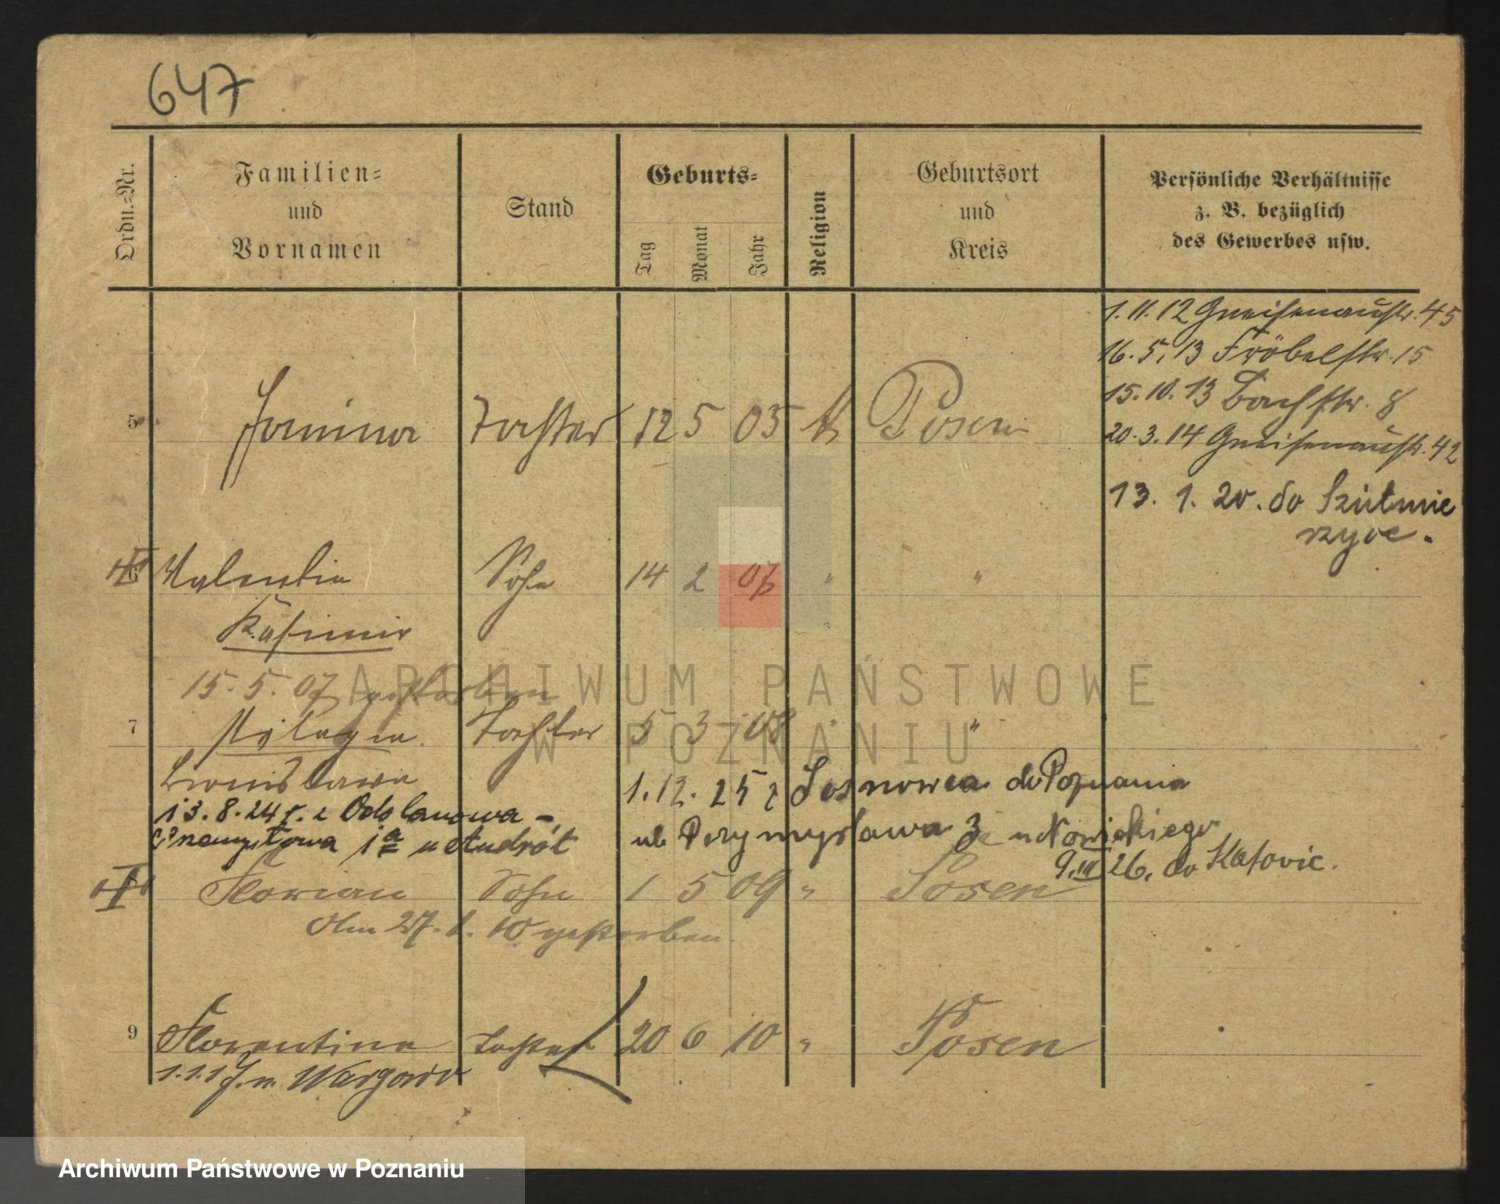 647
Ordn.-Nr.
Familien-
und
Vornamen
Stand
Geburts-
Tag
Monat
Jahr
Religion
Geburtsort
und
Kreis
Persönliche Verhältnisse
z. B. bezüglich
des Gewerbes usw.
1.11.12 Gneisenaustr. 45
16.5.13 Fröbelstr. 15
15.10.13 Bachstr. 8
20.3.14 Gneisenaustr. 42
5 Janina Tochter 12 5 05 k Posen
13. 1. 20. do
6 Valentin Sohn 14 2 07 " "
Kasimir
15.5.07 gestorben
7 Pelagia Tochter 5 3 08 " "
Bronislawa
1.12.25 z Sosnowca do Poznania
13.8.24 r. z Odolanowa -
ul Przemysława
u Nowickiego
9.III 26. do Katowic.
Florian Sohn 1 5 09 " Posen
Am 27.1.10 gestorben.
9 Florentine Tochter 20 6 10 " Posen
ARCHIWUM PAŃSTWOWE
W POZNANIU
Archiwum Państwowe w Poznaniu